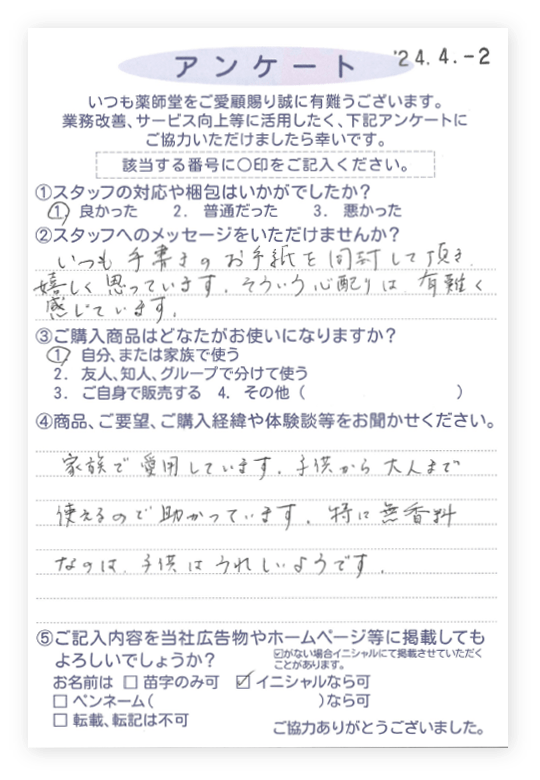 アンケート
'24.4.-2
いつも薬師堂をご愛顧賜り誠に有難うございます。
業務改善、サービス向上等に活用したく、下記アンケートに
ご協力いただけましたら幸いです。
該当する番号に〇印をご記入ください。
①スタッフの対応や梱包はいかがでしたか?
① 良かった 2. 普通だった 3. 悪かった
②スタッフへのメッセージをいただけませんか?
いつも手書きのお手紙を同封して頂き、
嬉しく思っています。そういう心配りは有難く
感じています。
③ご購入商品はどなたがお使いになりますか?
① 自分、または家族で使う
2. 友人、知人、グループで分けて使う
3. ご自身で販売する 4. その他 ( )
④商品、ご要望、ご購入経緯や体験談等をお聞かせください。
家族で愛用しています。子供から大人まで
使えるので助かっています。特に無香料
なのは、子供はうれしいようです。
⑤ご記入内容を当社広告物やホームページ等に掲載しても
よろしいでしょうか?
☑がない場合イニシャルにて掲載させていただく
ことがあります。
お名前は □ 苗字のみ可 ☑ イニシャルなら可
□ ペンネーム( )なら可
□ 転載、転記は不可
ご協力ありがとうございました。